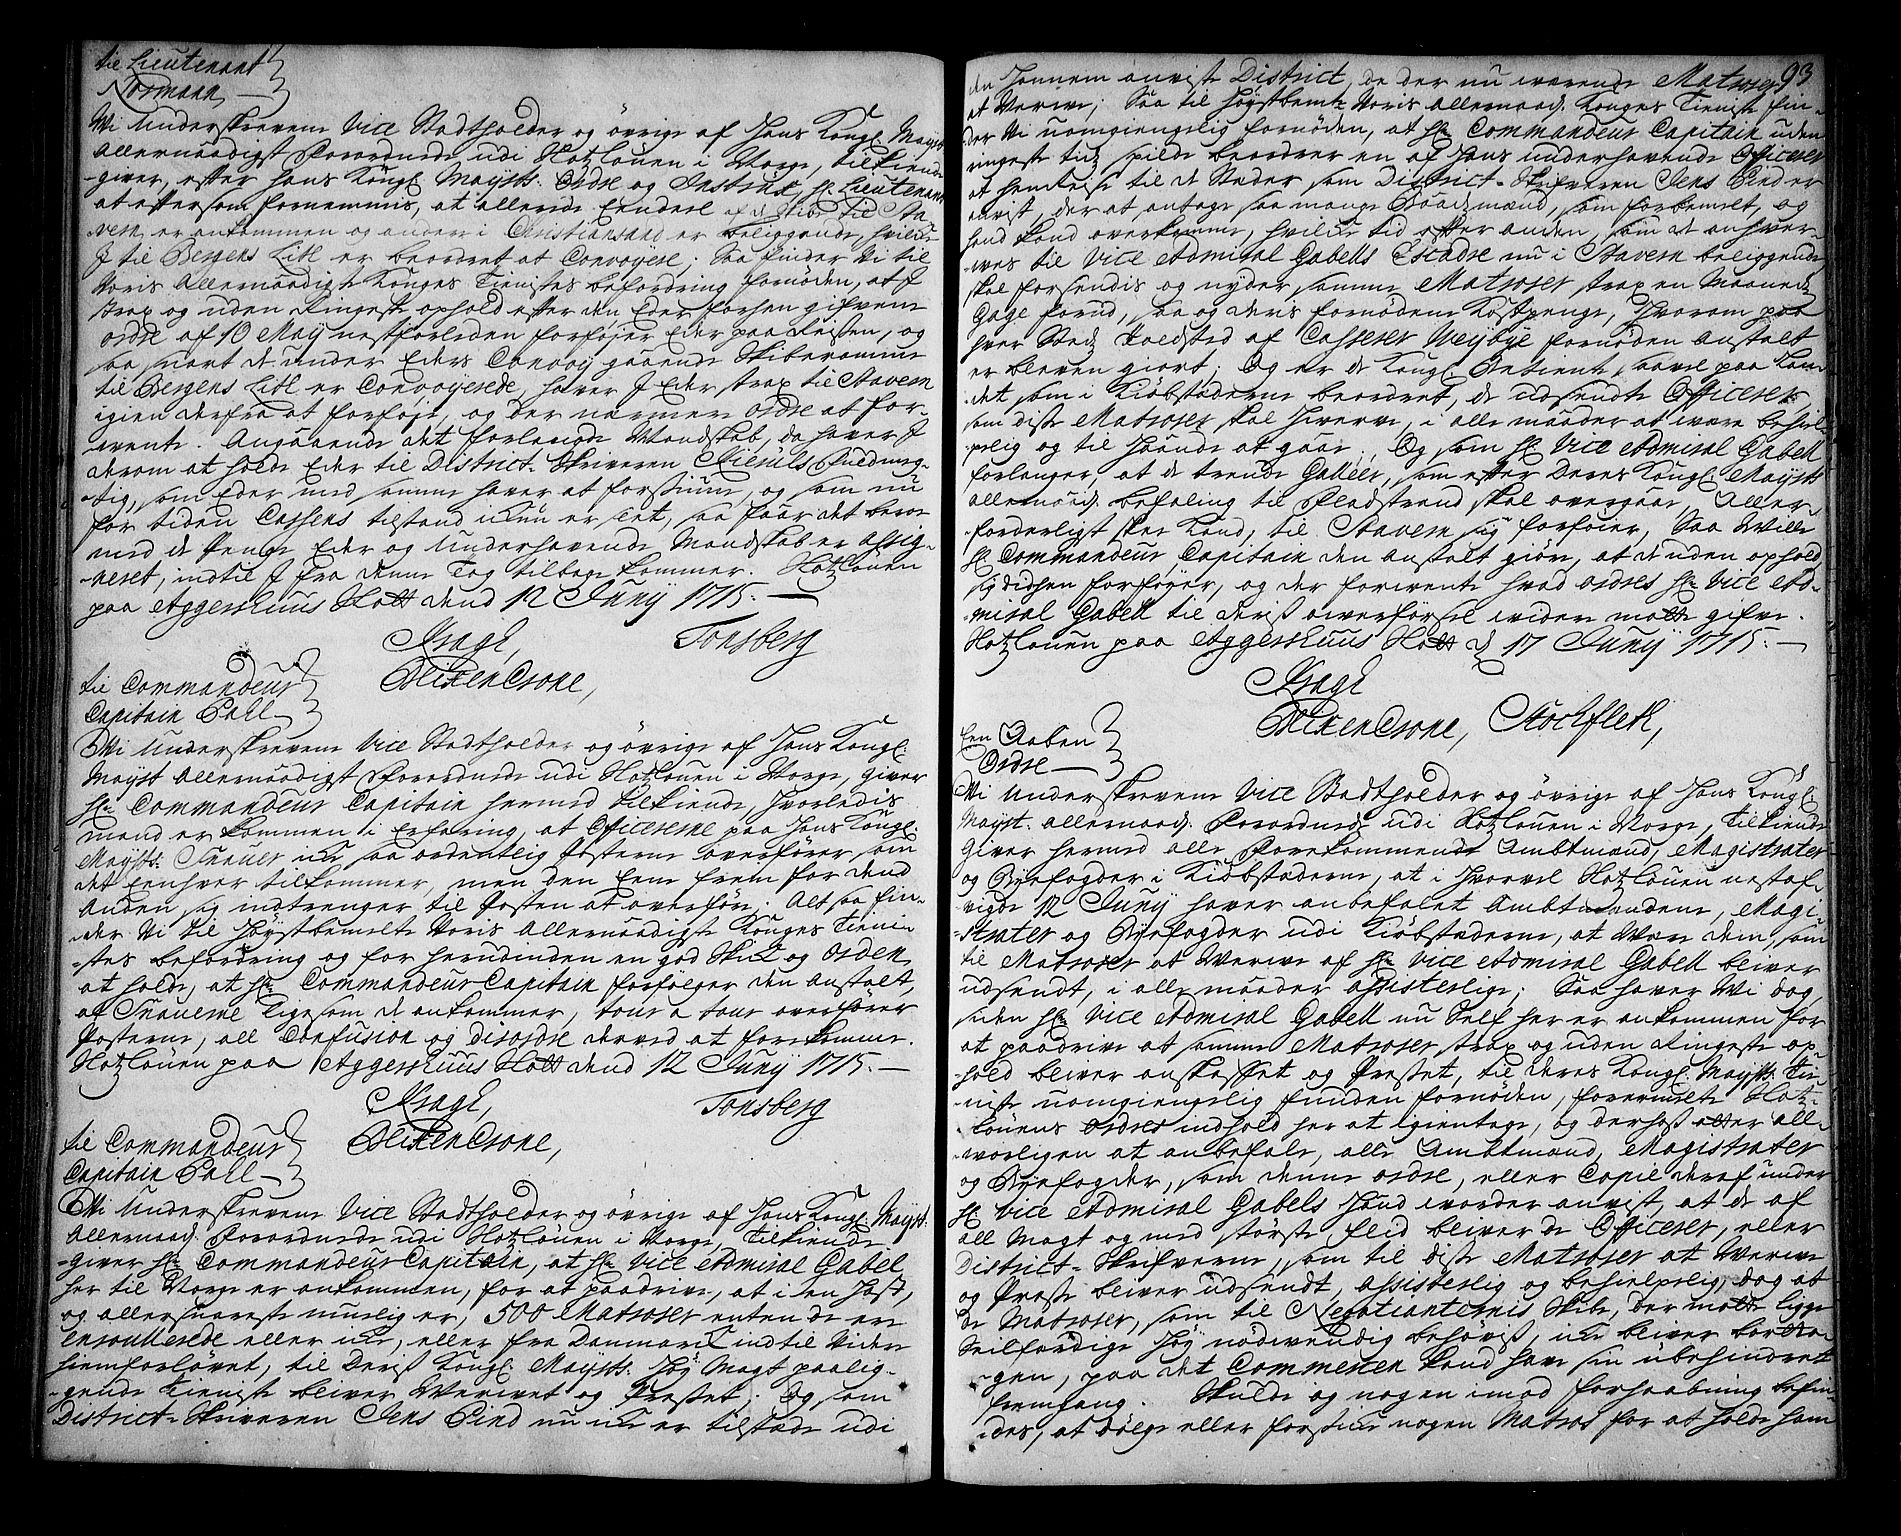 til Lieutenant
Normann
Wi Underskrevene Vice Stadtholder og övrige af Hans Kongl. Mayst
allernaadigst Forordnede udi Slotzlouen i Norge, tilkiende
-giver, efter Hans Kongl. Maysts. Ordre og Instrux, Hr. Lieutenant
at eftersom fornemmis, at allerede Eendeel af de Skibe til Sta-
vern er ankommen og andre i Christiansand er beliggende, hvilke
I til Bergens Leed er beordret at Convoyere; Saa finder Vi til
Voris Allernaadigste Konges Tienistes befordring fornöden, at I
strax og uden Ringeste ophold efter den Eder forhen gifvene
ordre af 10 May nestforleden forföjer Eder paa Reisen, og
saa snart de under Eders Convoy gaaende Skibe komme
til Bergens Leed er Convoyerede, haver I Eder strax til Stavern
igien derfra at forföje, og der nærmere ordre at for-
-vente. Angaaende det forlangte Mandskab, da haver I
derom at holde Eder til District-Skriveren Kieruls fuldmeg-
-tig, som Eder med samme haver at forsiune, og som nu
for tiden Cassens tilstand ikke er let, saa faar det bero
med de Penge Eder og Underhavende Mandskab er assig-
-neret, indtil I fra denne Tog tilbage kommer. Slotzlouen
paa Aggershuus Slott dend 12 Junij 1715.
Krage, Tonsberg
BlixenCrone,
til Commandeur
Capitain Pall
Wi Underskrevene Vice Stadtholder og övrige af Hans Kongl.
Mayst Allernaadigst Forordnede udi Slotzlouen i Norge, giver
Hr. Commandeur Capitain hermed tilkiende, hvorledis
mand er kommen i Erfaring, at Officererne paa Hans Kongl.
Maysts. Snauer ikke saa ordentlig Posterne overförer, som
det Eenhver tilkommer, men den Eene frem for dend
Anden sig indtrenger til Posten at overföre; Alt saa fin-
-der Vi til Höystbemelte Voris Allernaadigste Konges Tieni-
-stes befordring og for herudinden en god Skik og Orden
at holde, at Hr. Commandeur Capitain forföyer den anstalt,
at Snauerne ligesom de ankommer, tour a tour overförer
Posterne, all Confusion og Disordre derved at forekomme.
Slotzlouen paa Aggershuus Slott dend 12 Junij 1715.
Krage, Tonsberg
BlixenCrone,
til Commandeur
Capitain Pall
Wi Underskrevene Vice Stadtholder og övrige af Hans Kongl. Mayst.
Allernaad. Forordnede udi Slotzlouen i Norge, Tilkiende
-giver Hr. Commandeur Capitain, at Hr. Vice Admiral Gabel
her til Norge er ankommen, for at paadrive, at i en Hast,
og allersnareste muelig er, 500 Matroser enten de ere
Enroullerede eller ikke, eller fra Danmark indtil Videre
hiemforlövet, til Derist Kongl. Maysts. Höy Magt paalig-
-gende Tieniste bliver Wervet og Presset; Og som
District-Skriveren Jens Pind nu ikke er tilstæde udi
93
den Hannem anviste District, de der nu værende Matroser
at Werve; Saa til Höystbemte Voris Allernaad. Konges Tieniste fin-
der Vi uomgiengelig fornöden, at Hr. Commandeur Capitain uden
ringeste tiids spilde beordrer en af Hans underhavende Officerer
at henreise til de Steder som District-Skrifveren Jens Pind er
anvist, der at antage saa mange Baadsmænd, som forbemelt, og
hand kand overkomme, hvilke tid efter anden, som de anhver-
-ves til Vice Admiral Gabells Escadre nu i Stavern beliggende
skal forsendis og nyder samme Matroser strax en Maaneds
Gage forud, saa og deris fornödene Kostpenge, Hvorom paa
hver Sted Toldsted af Casserer Weybye fornöden Anstalt
er bleven giort; Og er de Kongl. Betiente saavel paa Lan-
det som i Kiöbstæderne beordret, de udsendte Officerer
som diste Matroser skal hverve, i alle maader at være behielp-
pelig og til Haande at gaae; Og som Hr. Vice Admiral Gabell
forlanger, at de trende Galleier, som efter Deres Kongl. Maysts
allernaad. befaling til Fladstrand skal overgaae, Aller-
-forderligst skee kand, til Stavern sig forföier, Saa Wille
Hr. Commandeur Capitain den anstalt giöre, at de uden ophold
sig didhen forföyer, og der forvente hvad ordres Hr. Vice Ad-
miral Gabell til derist overförsel videre matte gifve.
Slotzlouen paa Aggershuus Slott d. 17 Junij 1715.
Krage
BlixenCrone, Stockflek,
Een Aaben
Ordre
Wi Underskrevene Vice Stadtholder og övrige af Hans Kongl.
Mayst. allernaad. Forordnede udi Slotzlouen i Norge, Tilkiende
Giver hermed alle Forekommende Ambtmænd, Magistrater
og Byefogder i Kiöbstæderne, at i hvorvel Slotzlouen nestaf-
vigte 12 Junij haver anbefalet Ambtmændene, Magi-
-strater og Byefogder udi Kiöbstæderne, at være dem, som
til Matroser at Werve af Hr. Vice Admiral Gabell bliver
udsendt, i alle maader assisterlige; Saa haver Wi dog,
siden Hr. Vice Admiral Gabell nu Self her er ankommen for
at paadrive at samme Matroser strax og uden Ringeste op-
-hold bliver anskaffet og Presset, til Deres Kongl. Maysts. Tie-
-niste uomgiengelig funden fornöden, forermelte Slotz-
-Louens ordres indhold her at Igientage, og derhos atter all-
-vorligen at anbefale, alle Ambtmænd, Magistrater
og Byefogder, som denne ordre, eller Copie deraf under
Hr. Vice Admiral Gabels Haand worder anvist, at de af
all Magt og med störste flid bliver de Officerer, eller
District-Skrifverne, som til diste Matroser at Werve
og Presse bliver udsendt, assisterlig og behielpelig, dog at
de Matroser, som til Negotianternis Skibe, der matte ligge
Seilfærdige Höy nödvendig behövist, ikke bliver borttta-
-gen, paa det Commercen kand have sin ubehindrett
fremgang. Skulde og nogen imod forhaabning befin-
-des, at dölge eller forstikke nogen Matros for at holde ham